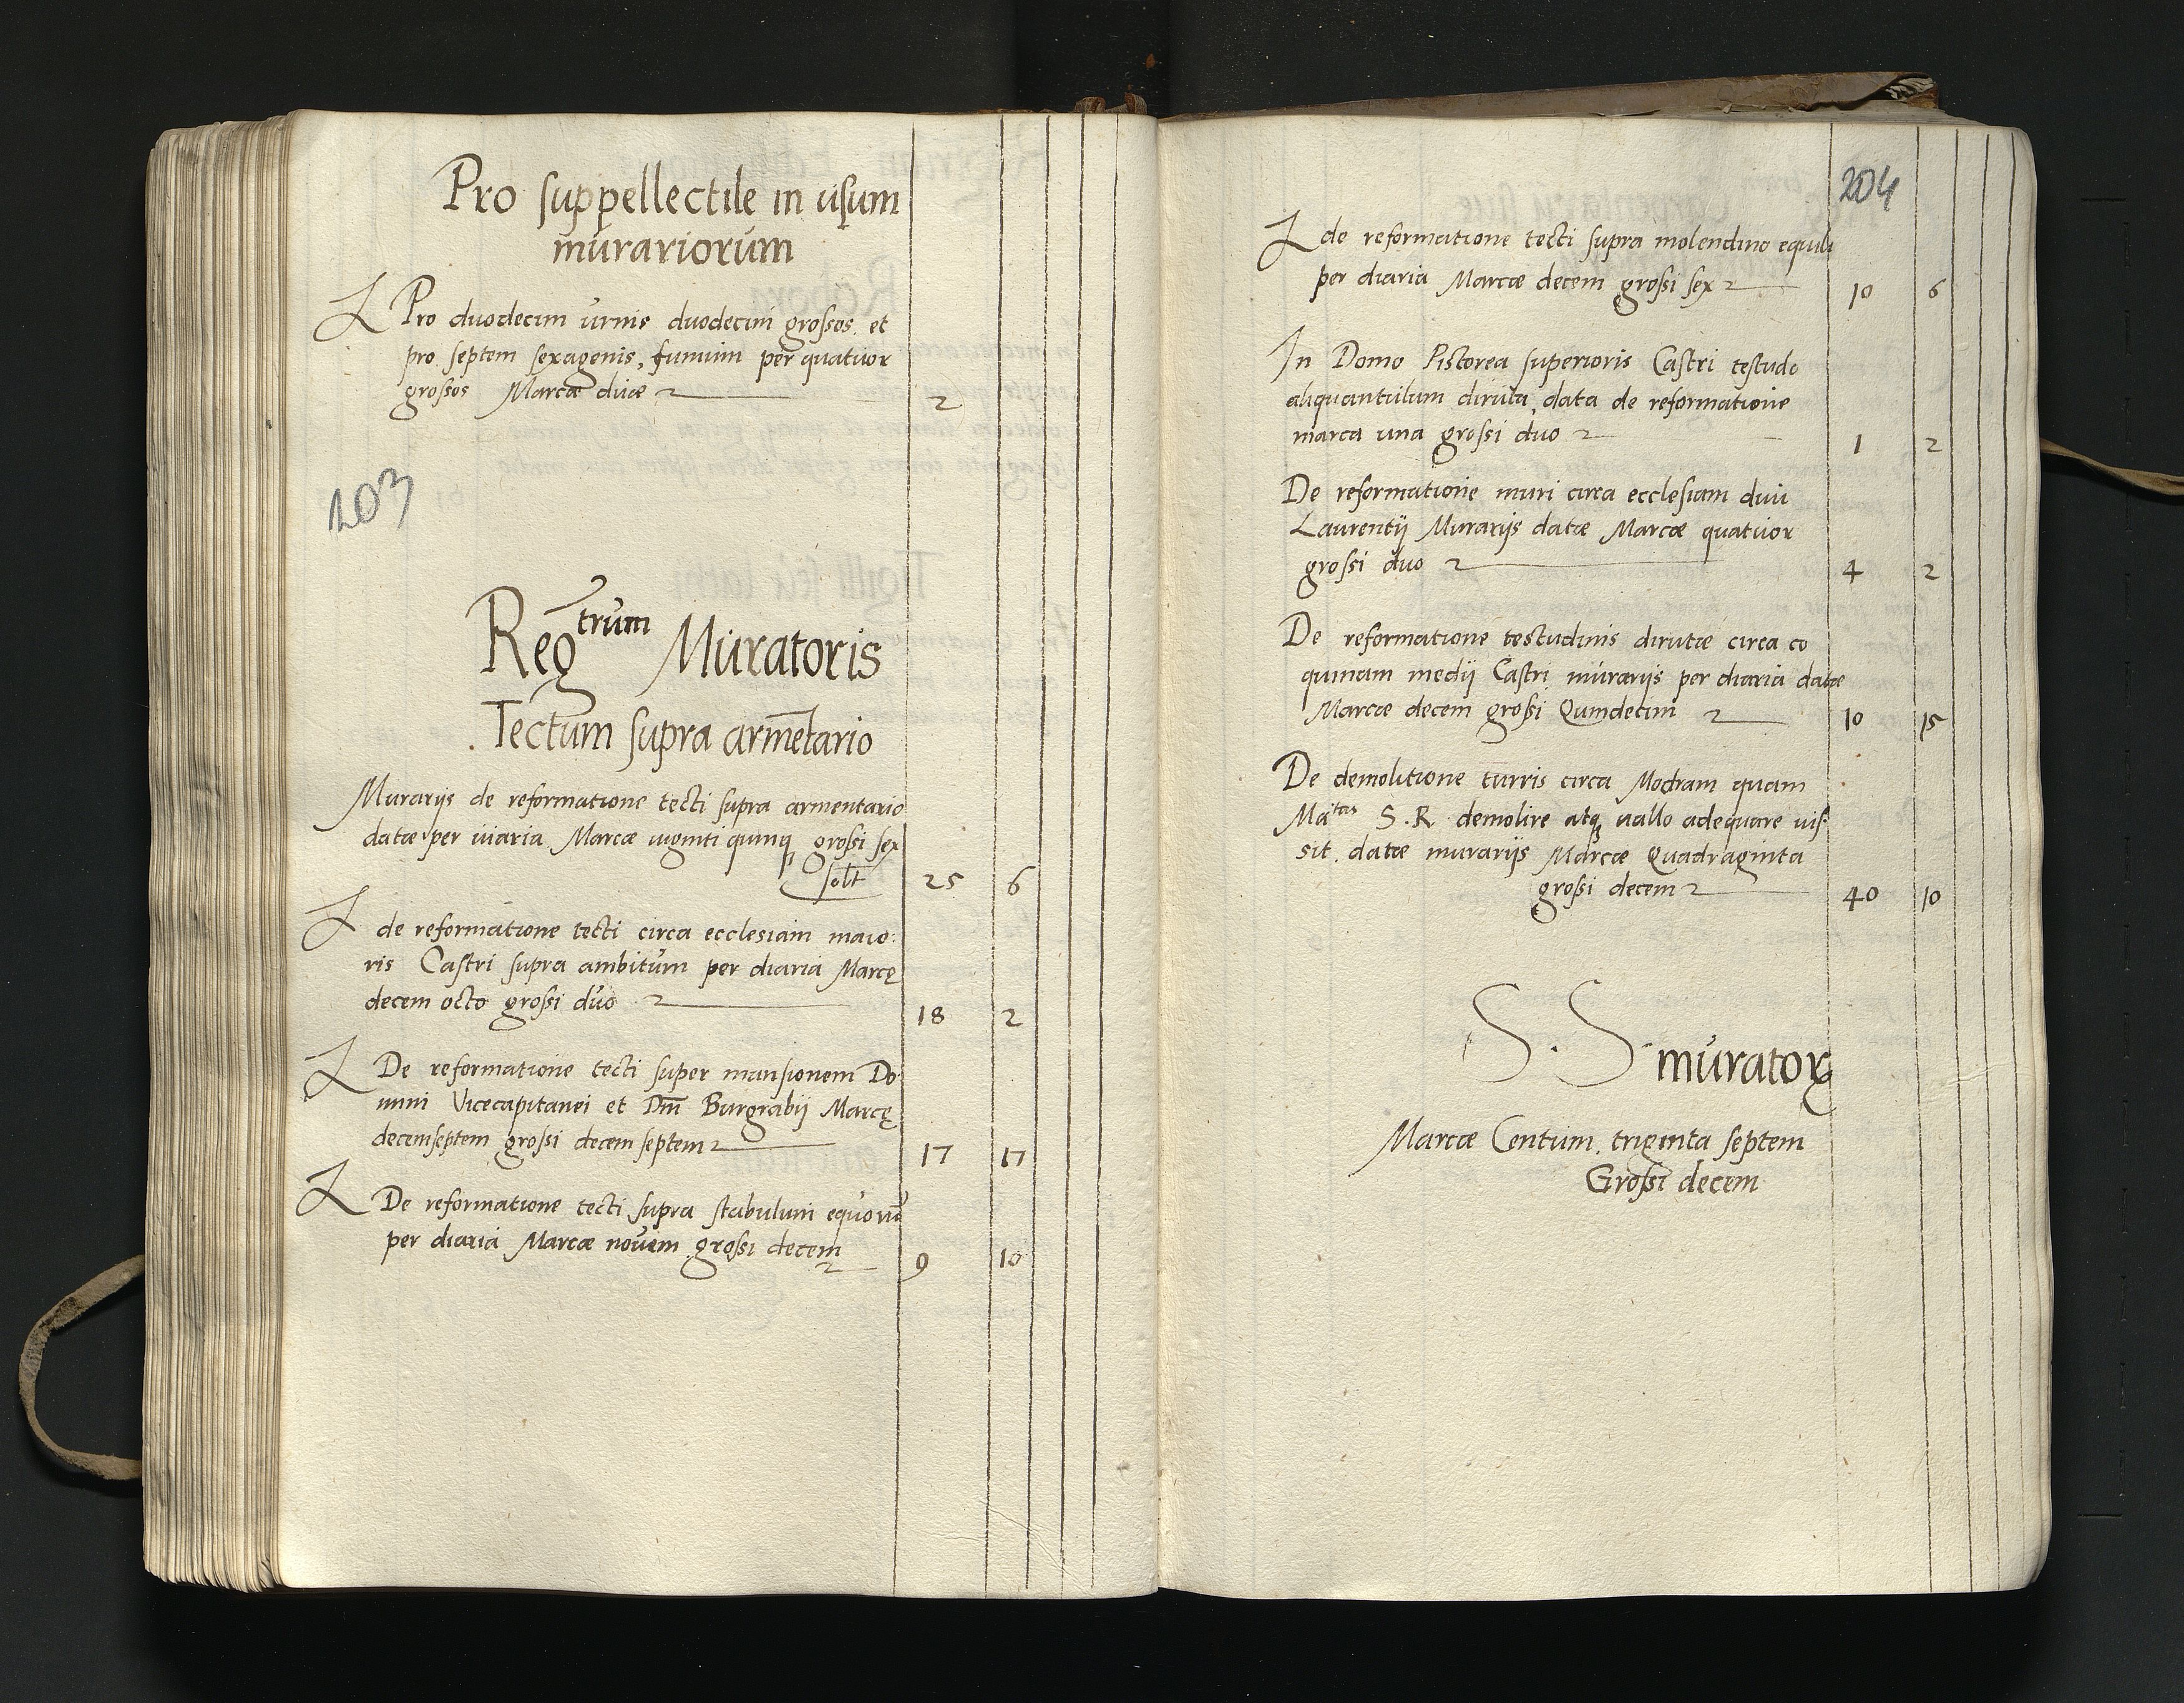 Pro suppellectile in usum
murariorum
Pro duodecim urnis duodecim grossos et
pro septem sexagenis, funium per quatuor
grossos Marcæ duæ 2
203
Reg^trum Muratoris
Tectum supra armētario
Murarijs de reformatione tecti supra armentario
datæ per diaria Marcæ viginti quinq grossi sex
solt 25 6
de reformatione tecti circa ecclesiam maio:
ris Castri supra ambitum per diaria Marcę
decem octo grossi duo 18 2
De reformatione tecti super mansionem Do
mini Vicecapitanei et Dm̄ Burgrabij Marcę
decemseptem grossi decem septem 17 17
De reformatione tecti supra stabulum equorū
per diaria Marcæ novem grossi decem 9 10
204
de reformatione tecti supra molendino equili
per diaria Marcæ decem grossi sex 10 6
In Domo Pistorea superioris Castri testudo
aliquantulum diruta, data de reformatione
marca una grossi duo 1 2
De reformatione muri circa ecclesiam divi
Laurentij Murarijs datæ Marcæ quatuor
grossi duo 4 2
De reformatione testudinis dirutæ circa co
quinam medij Castri murarijs per diaria datæ
Marcæ decem grossi Quindecim 10 15
De demolitione turris circa Modram quam
Ma^tas S. R demolire atq vallo adequare vis:
sit. datæ murarijs Marcæ Quadraginta
grossi decem 40 10
S. S murator
Marcæ Centum. triginta septem
Grossi decem